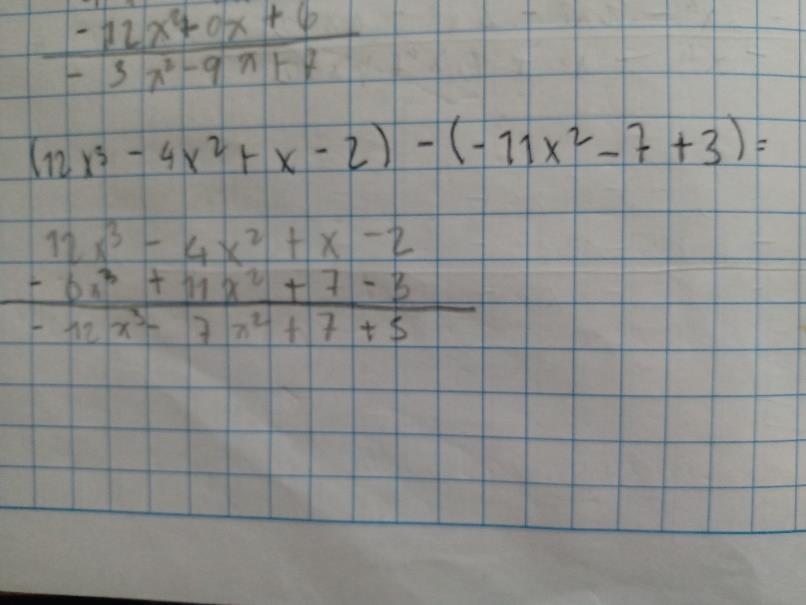 - 12x²+0x + 6
- 3x²-9x+7
(12x³ - 4x² + x - 2) - (-11x² - 7 + 3) =
12x³ - 4x² + x - 2
- 0x³ + 11x² + 7 - 3
- 12x³ - 7x² + 7 + 5